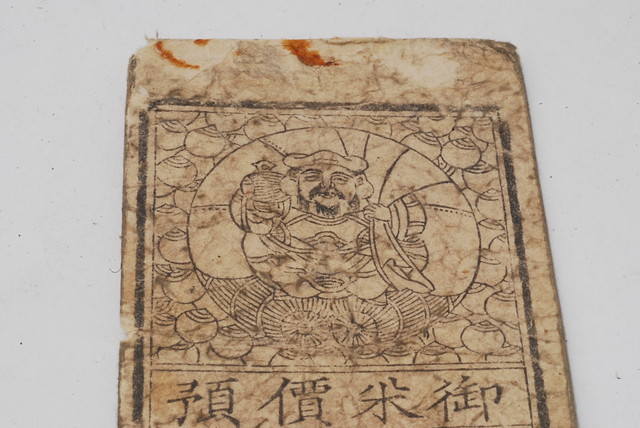 御米價預